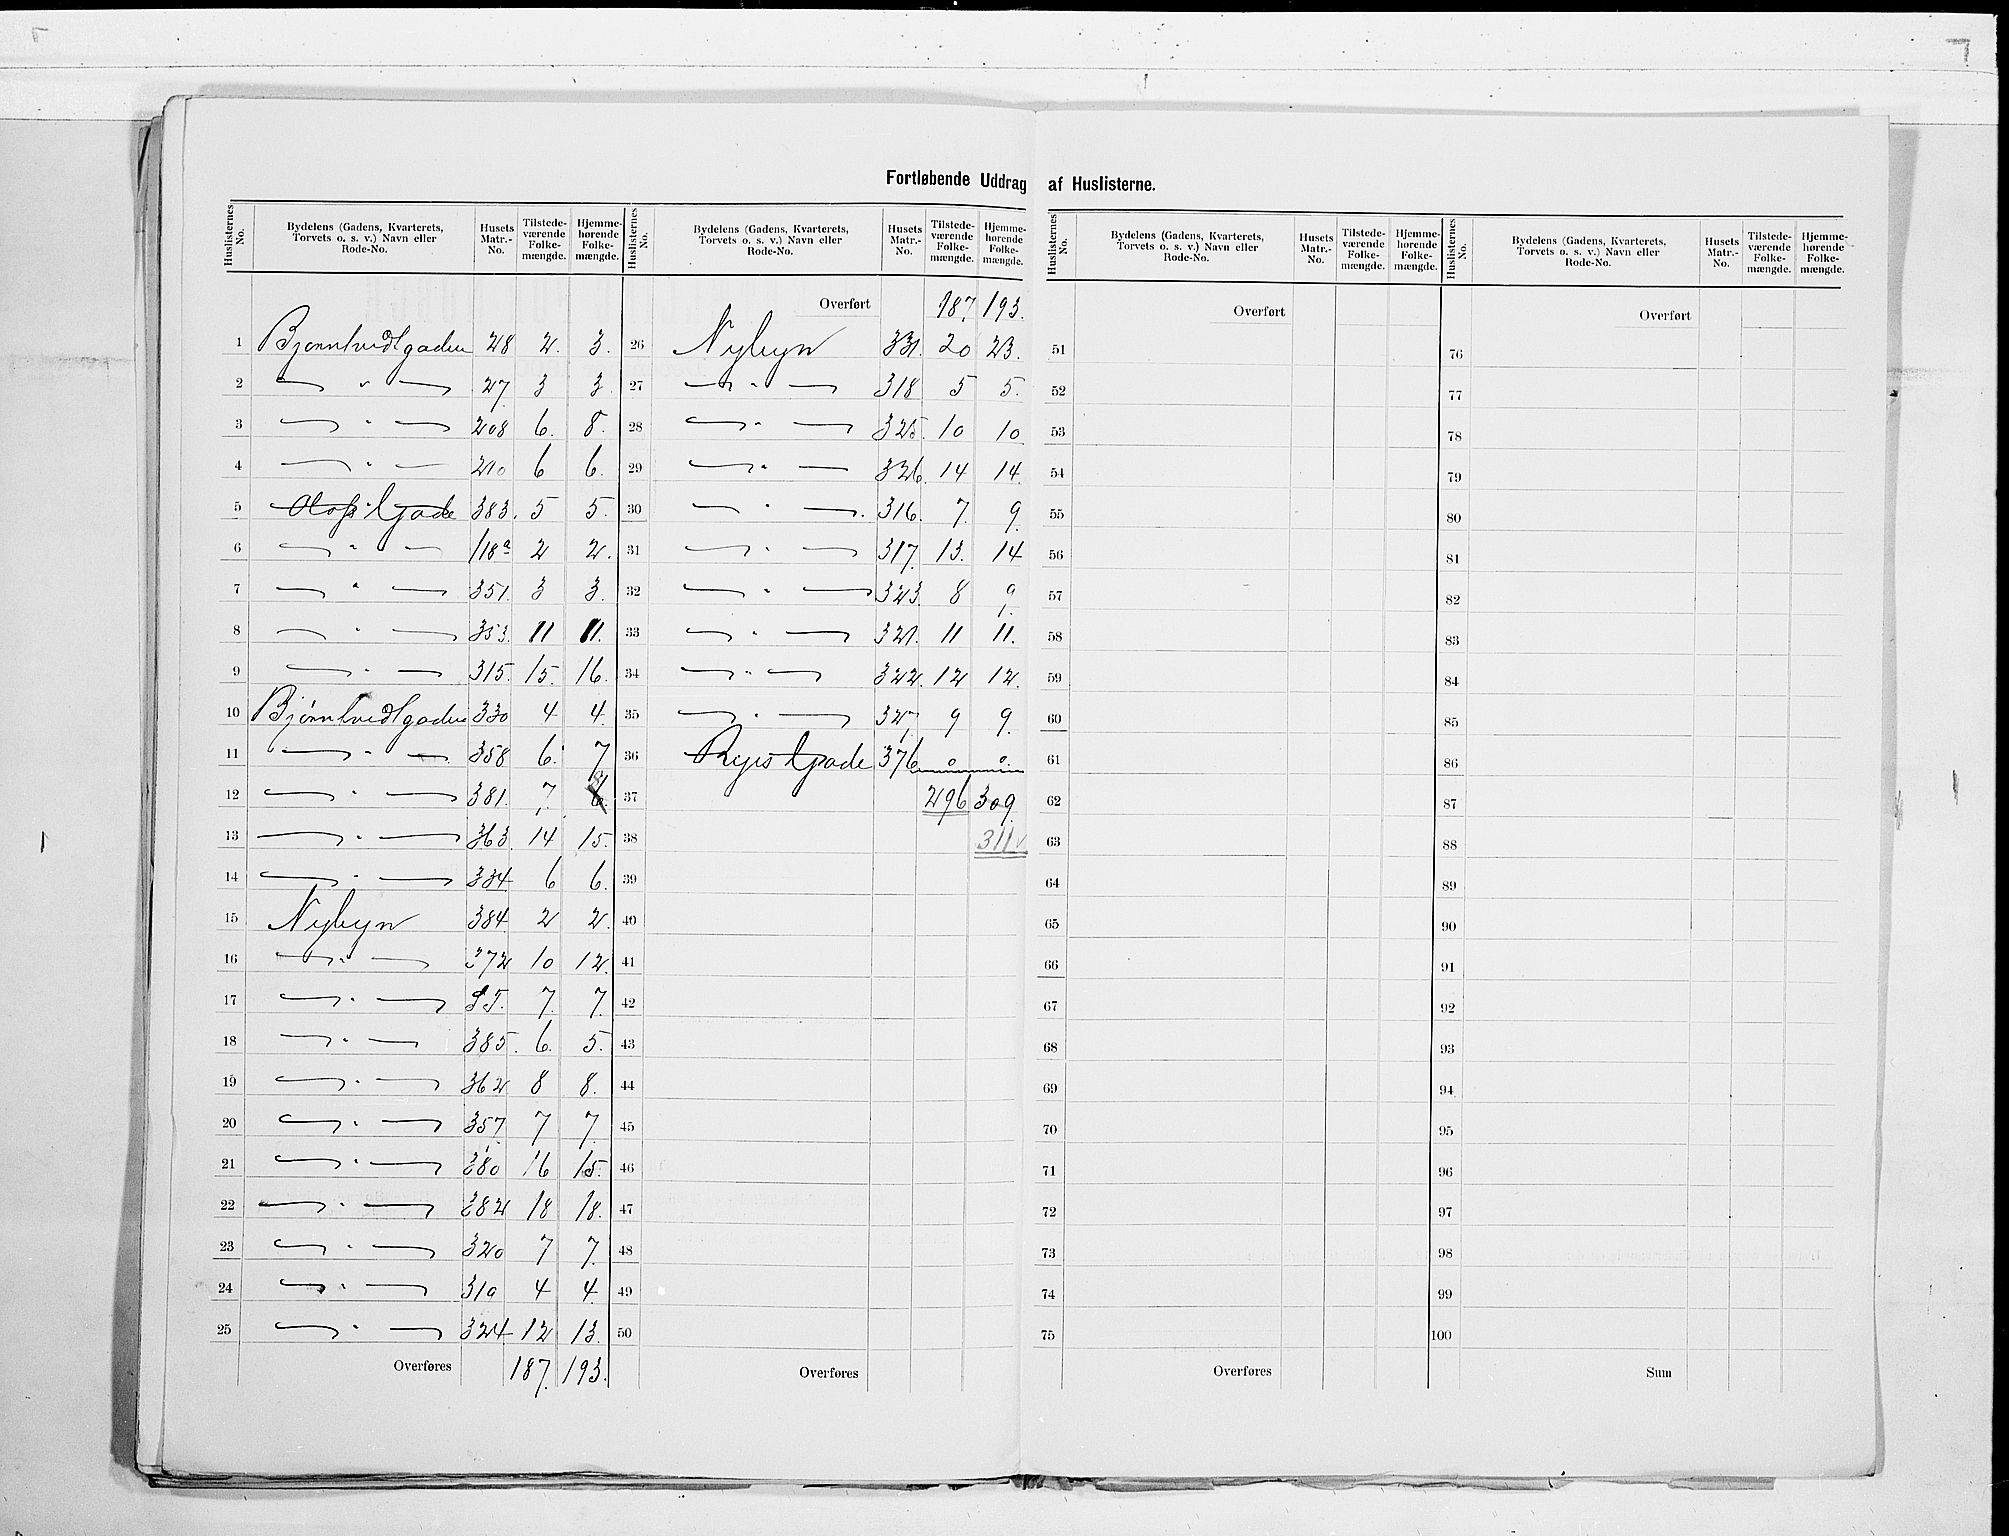 Fortløbende Uddrag af Huslisterne.
Huslisternes No. | Bydelens (Gadens, Kvarterets, Torvets o. s. v.) Navn eller Rode-No. | Husets Matr.-No. | Tilstede-værende Folke-mængde. | Hjemme-hørende Folke-mængde.
1 Bjørntvedtgaden 28 2. 3.
2 — " — 27 3 3.
3 — " — 208 6. 8.
4 — " — 210 6 6.
5 Olafs Gade 383. 5 5.
6 — " — 118a 2 2.
7 — " — 351. 3 3.
8 — " — 353. 11 11.
9 — " — 315. 15. 16.
10 Bjørntvedtgaden 330 4 4.
11 — " — 358 6. 7
12 — " — 381. 7. 8
13 — " — 363. 14 15.
14 — " — 334 6 6.
15 Nybyen 384 2 2.
16 — " — 372 10 12.
17 — " — 7. 7.
18 — " — 385. 6. 5.
19 — " — 362 8 8.
20 — " — 357 7 7.
21 — " — 380 16 15.
22 — " — 382 18 18.
23 — " — 320 7 7.
24 — " — 310 4 4.
25 — " — 324 12 13.
Overføres 187. 193.
Huslisternes No. | Bydelens (Gadens, Kvarterets, Torvets o. s. v.) Navn eller Rode-No. | Husets Matr.-No. | Tilstede-værende Folke-mængde. | Hjemme-hørende Folke-mængde.
Overført 187. 193.
26 Nybyen 331. 20 23.
27 — " — 318 5 5.
28 — " — 325. 10 10.
29 — " — 326. 14 14.
30 — " — 316. 7. 9.
31 — " — 317. 13. 14
32 — " — 323. 8 9.
33 — " — 321. 11 11.
34 — " — 322. 12 12.
35 — " — 327. 9 9.
36 Ryes Gade 376 0 0.
37 296 309.
38 311
39
40
41
42
43
44
45
46
47
48
49
50
Overføres
Huslisternes No. | Bydelens (Gadens, Kvarterets, Torvets o. s. v.) Navn eller Rode-No. | Husets Matr.-No. | Tilstede-værende Folke-mængde. | Hjemme-hørende Folke-mængde.
Overført
51
52
53
54
55
56
57
58
59
60
61
62
63
64
65
66
67
68
69
70
71
72
73
74
75
Overføres
Huslisternes No. | Bydelens (Gadens, Kvarterets, Torvets o. s. v.) Navn eller Rode-No. | Husets Matr.-No. | Tilstede-værende Folke-mængde. | Hjemme-hørende Folke-mængde.
Overført
76
77
78
79
80
81
82
83
84
85
86
87
88
89
90
91
92
93
94
95
96
97
98
99
100
Sum